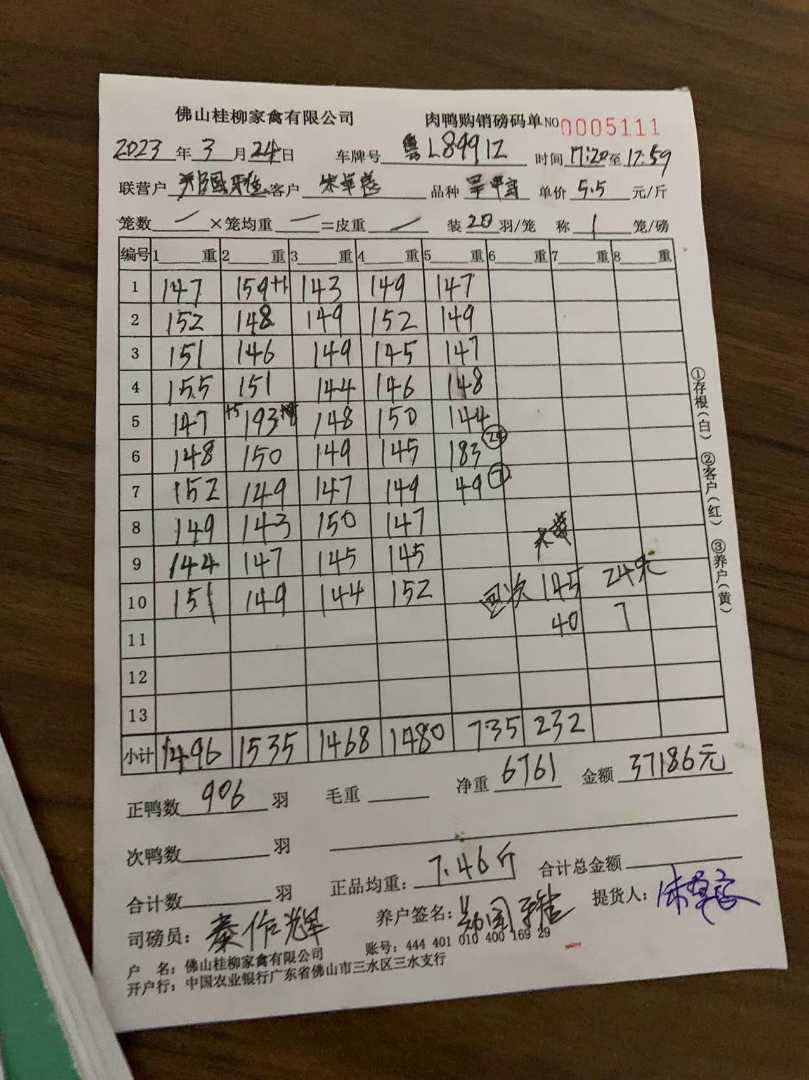 佛山桂柳家禽有限公司 肉鸭购销磅码单 NO 0005111
2023 年 3 月 24 日 车牌号 粤L8991Z 时间 17:20 至 17:59
联营户 客户 品种 单价 5.5 元/斤
笼数 一 ×笼均重 一 =皮重 一 装 20 羽/笼 称 1 笼/磅
编号 1 重 2 重 3 重 4 重 5 重 6 重 7 重 8 重
1 147 159+1 143 149 147
2 152 148 149 152 149
3 151 146 149 145 147
4 155 151 144 146 148
5 147 +5 193 148 150 144
6 148 150 149 145 183 24
7 152 149 147 149 49 7
8 149 143 150 147
9 144 147 145 145
10 151 149 144 152 145
11 40 7
12
13
小计 1496 1535 1468 1480 735 232
正鸭数 906 羽 毛重 净重 6761 金额 37186元
次鸭数 羽
合计数 羽 正品均重: 7.46斤 合计总金额
司磅员: 秦作辉 养户签名: 提货人:
户 名: 佛山桂柳家禽有限公司 账号: 444 401 010 400 169 29
开户行: 中国农业银行广东省佛山市三水区三水支行
①存根(白) ②客户(红) ③养户(黄)